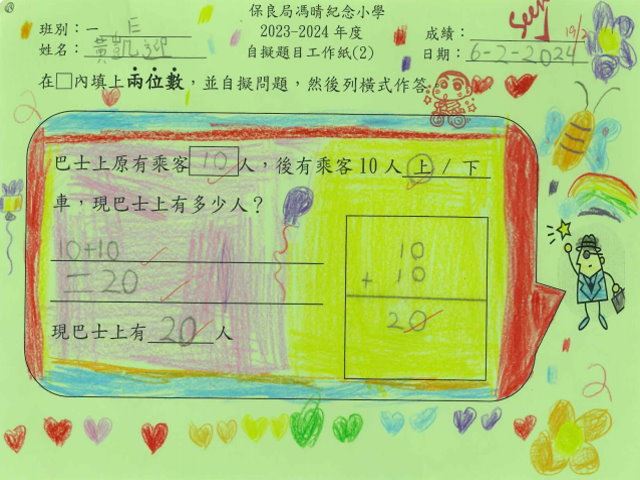 保良局馮晴紀念小學
班別：一 E
2023-2024 年度
成績：
seen 19/2
姓名：黃凱翀
自擬題目工作紙(2)
日期：6-2-2024
在□內填上兩位數，並自擬問題，然後列橫式作答。
巴士上原有乘客 10 人，後有乘客 10 人 上 / 下
車，現巴士上有多少人？
10+10
=20
10
+ 10
20
現巴士上有 20 人